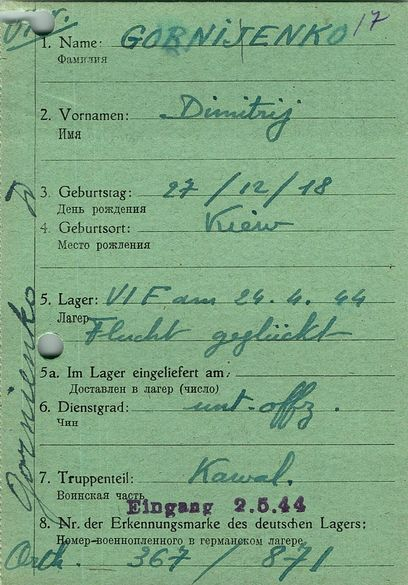 17
1. Name: GORNIJENKO
Фамилия
2. Vornamen: Dimitrij
Имя
3. Geburtstag: 27/12/18
День рождения
4. Geburtsort: Kiew
Место рождения
5. Lager: VI F am 24.4.44
Лагер Flucht geglückt
5a. Im Lager eingeliefert am:
Доставлен в лагер (число)
6. Dienstgrad: unt-offz.
Чин
7. Truppenteil: Kawal.
Воинская часть
Eingang 2.5.44
8. Nr. der Erkennungsmarke des deutschen Lagers:
Номер-военнопленного в германском лагере
Orth. 367 / 871
Gornienko